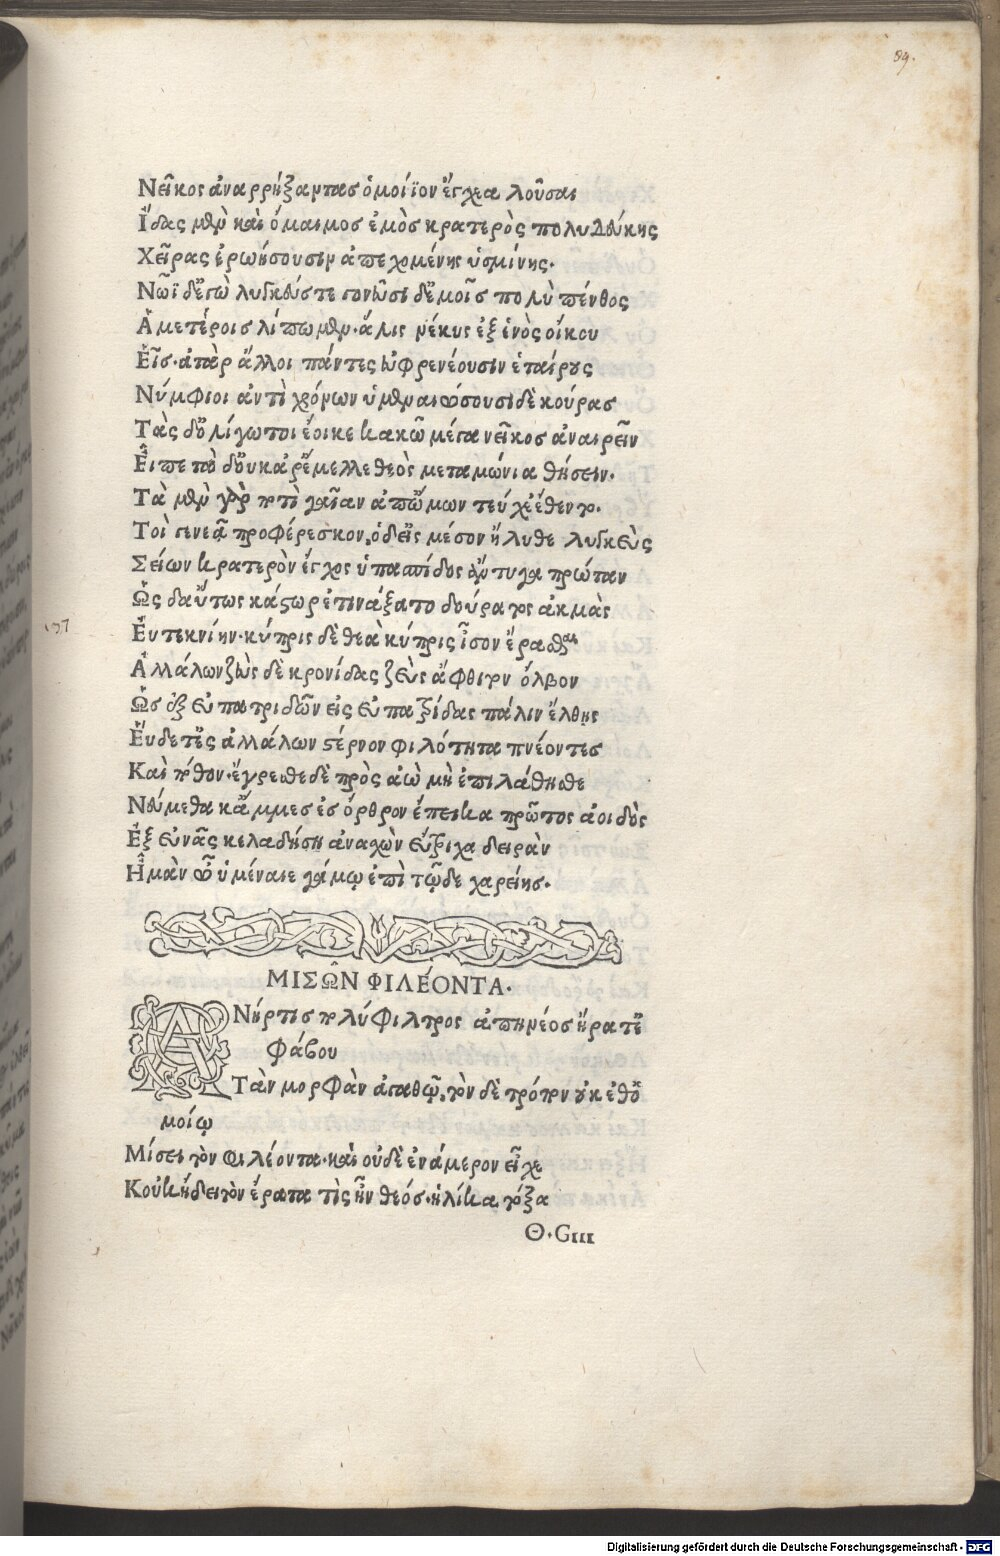 89.
Νεῖκος ἀναρρήξαντας ὁμοίϊον ἔγχεα λοῦσαι
Ἴδας μὲν καὶ ὅμαιμος ἐμὸς κρατερὸς πολυδεύκης
Χεῖρας ἐρωήσουσιν ἀπεχομένης ὑσμίνης.
Νῶϊ δ' ἐγὼ λυγκεύς τε
πολὺ πένθος
Ἀμετέροις λίπωμεν. ἅλις νέκυς ἐξ ἑνὸς οἴκου
Εἷς. ἀτὰρ ἄλλοι πάντες εὐφρενέουσιν ἑταίρους
Νύμφιοι ἀντὶ χρόνων ὑμεναιώσουσι δὲ κούρας
Τὰς δ' ὀλίγω τοι ἔοικε κακῶ μέγα νεῖκος ἀναιρεῖν
Εἶπε τὸ δ' οὐκ ἄρ' ἔμελλε θεὸς μεταμώνια θήσειν.
Τὰ μὲν γὰρ ποτὶ γαῖαν ἀπ' ὤμων τεύχε' ἔθεντο.
Τοὶ γενεᾶ προφέρεσκον. ὁ δ' εἰς μέσον ἤλυθε λυγκεὺς
Σείων κρατερὸν ἔγχος ὑπ' ἀσπίδος ἄντυγα πρώταν
Ὣς δ' αὔτως κάστωρ ἐτινάξατο δούρατος ἀκμὰς
Εὐτεκνίην. κύπρις δὲ θεὰ κύπρις ἶσον ἔρασθαι
Ἀλλάλων ζεὺς δὲ κρονίδας ζεὺς ἄφθιτον ὄλβον
Ὡς ἐξ εὐπατριδῶν εἰς εὐπατρίδας πάλιν ἔλθῃς
Εὕδετ' ἐς ἀλλάλων στέρνον φιλότητα πνέοντες
Καὶ πόθον. ἔγρεσθε δὲ πρὸς ἀῶ μὴ ἐπιλάθησθε
Νεύμεθα κἄμμες ἐς ὄρθρον ἔπεικα πρῶτος ἀοιδὸς
Ἐξ εὐνᾶς κελαδήσῃ ἀνασχὼν εὔτριχα δειρὰν
Ὑμὰν ὦ ὑμέναιε γάμῳ ἐπὶ τῷδε χαρείης.
ΜΙΣΩ͂Ν ΦΙΛΈΟΝΤΑ.
ΑΝήρ τις πολύφιλτρος ἀπηνέος ἤρατ' ἐ
φάβου
Τὰν μορφὰν ἀγαθῷ, τὸν δὲ τρόπον οὐκ ἐθ' ὁ
μοίῳ
Μίσει τὸν φιλέοντα. καὶ οὐδὲ ἓν ἅμερον εἶχε
Κοὐκ ᾔδει τὸν ἔρωτα τὶς ἦν θεός. ἡλίκα τόξα
Θ. Giii
Digitalisierung gefördert durch die Deutsche Forschungsgemeinschaft - DFG